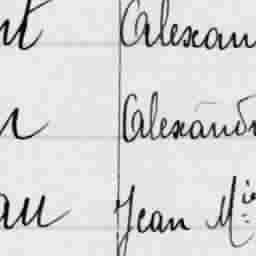 nt Alexan
n Alexand
au Jean M.ie